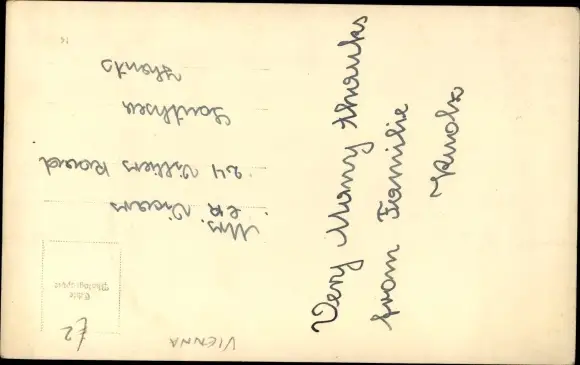 Very Many thanks
from Familie
Knolz
Mrs. Vicars
24 Villiers Road
Southsea
Hants
Echte
Photographie
£2
VIENNA